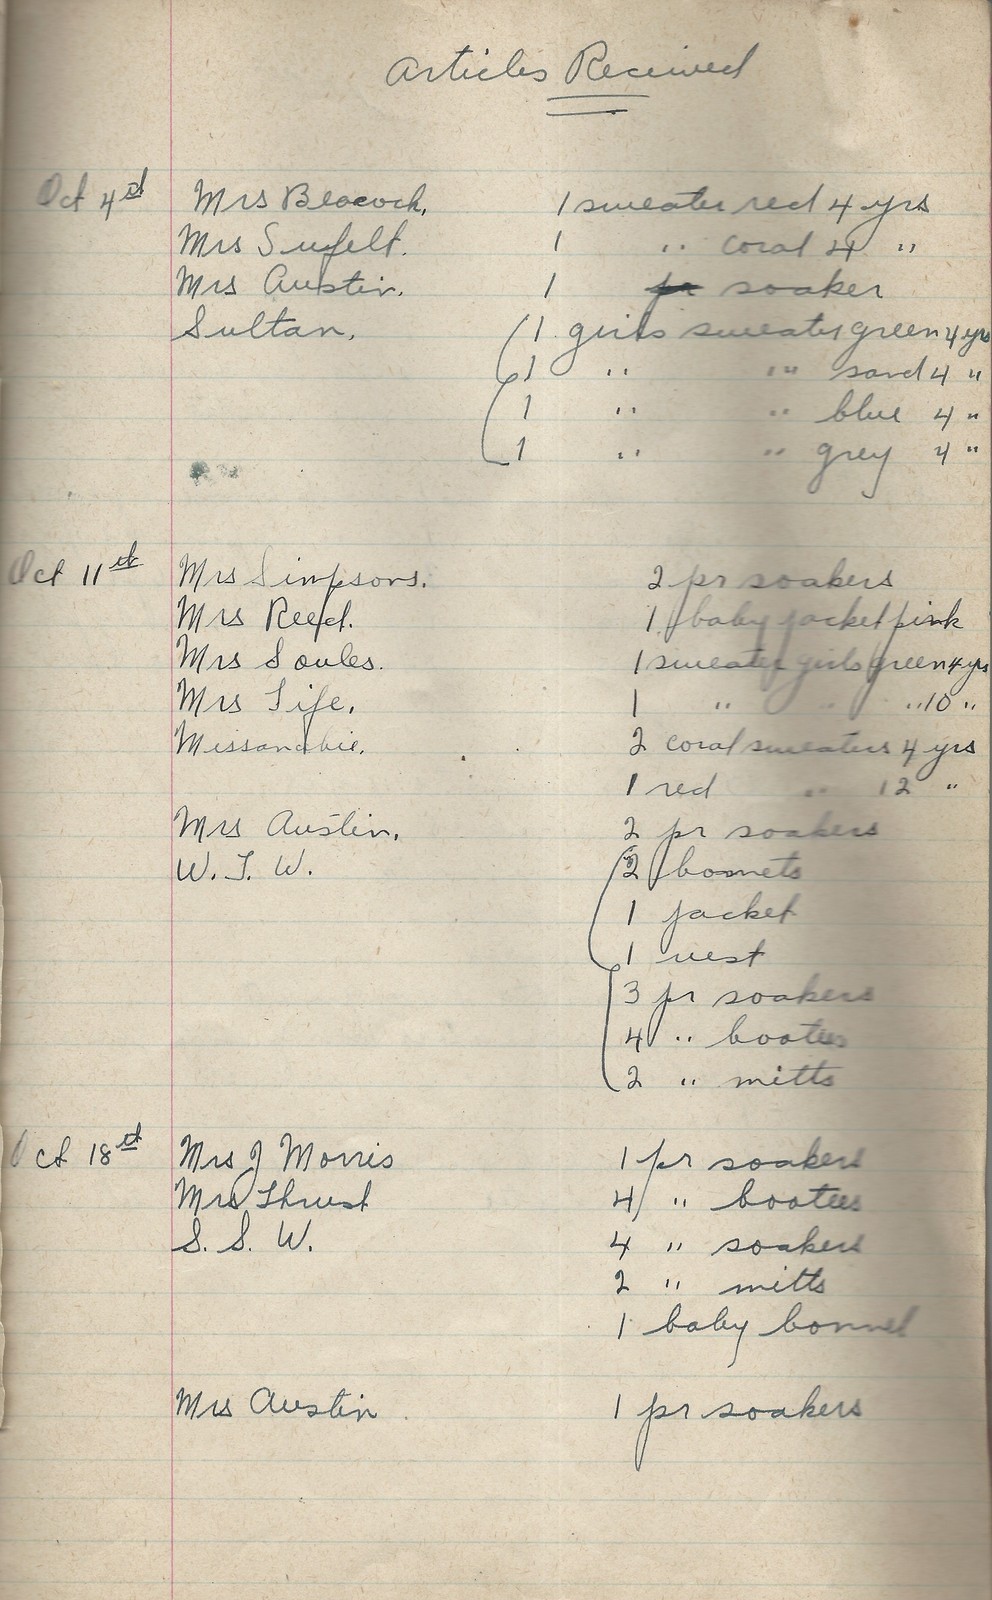 Articles Received
Oct 4st Mrs Beacock, 1 sweater red 4 yrs
Mrs 1 " coral 4 "
Mrs Austin. 1 soaker
Sultan, 1 girls sweater green 4 yrs
1 " " sand 4 "
1 " " blue 4 "
1 " " grey 4 "
Oct 11st Mrs Simpsons. 2 pr soakers
Mrs Reed. 1 baby jacket pink
Mrs Soules. 1 sweater girls green 4 yrs
Mrs Fife, 1 " " " 10 "
Missanabie. 2 coral sweaters 4 yrs
1 red " 12 "
Mrs Austin, 2 pr soakers
W. T. W. 2 bonnets
1 jacket
1 vest
3 pr soakers
4 " bootees
2 " mitts
Oct 18st Mrs J Morris 1 pr soakers
Mrs Thrust 4 " bootees
S. S. W. 4 " soakers
2 " mitts
1 baby bonnet
Mrs Austin 1 pr soakers